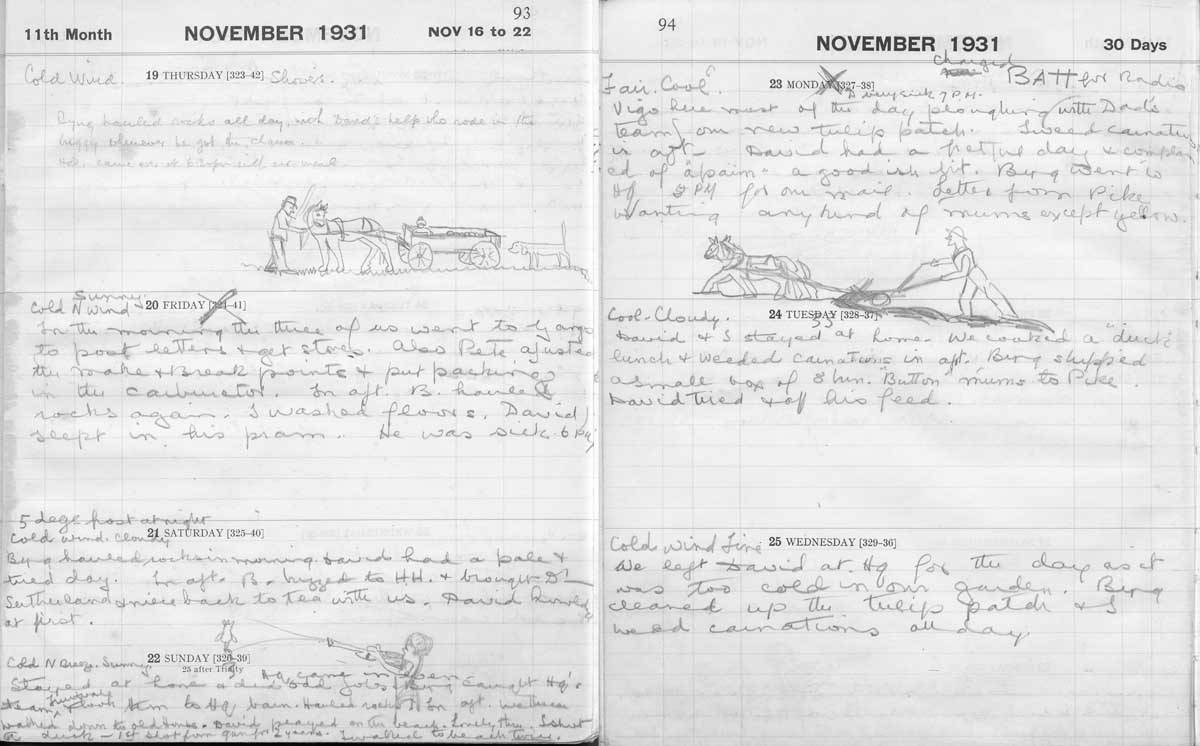 93
11th Month NOVEMBER 1931 NOV 16 to 22
Cold Wind. 19 THURSDAY [323-42] Show's.
hauled rocks all day, with David's help who rode in the
buggy whenever he got the chance.
Cold N Wind Sunny 20 FRIDAY [324-41]
In the morning the three of us went to
to post letters & get stores. Also Pete ajusted
the make & Break points & put packing
in the carburator. In aft. B. hauled
rocks again. I washed floors. David
slept in his pram. He was sick 6 PM
5 degs frost at night
Cold wind. Cloudy 21 SATURDAY [325-40]
hauled rocks in morning. David had a pale &
tired day. In aft. B. to HH. & brought Dr
Sutherland & niece back to tea with us. David
at first.
Cold N Breeze. Sunny 22 SUNDAY [326-39]
25 after Trinity
Hq came in
Stayed at home & did odd jobs Hq's
team them to Hq barn. Hauled rocks in aft. We three
walked down to old House. David played on the beach. I shot
a duck – 1st shot from gun for 2 years. I walked to beach twice.
94
NOVEMBER 1931 30 Days
Fair. Cool. 23 MONDAY [327-38] Charged BATT for Radio
7 P.M.
Vigo here most of the day ploughing with Dad's
team, our new tulip patch. I weed carnations
in aft. David had a fretful day & complain
ed of "a pain" a good ish bit. went to
Hq 2 PM for our mail. Letter from Pike
wanting any kind of mums except yellow.
Cool-Cloudy. 24 TUESDAY [328-37]
33
David & I stayed at home. We cooked a "duck"
lunch & weeded carnations in aft. shipped
a small box of 8 bun. "Button" mums to Pike.
David tired & off his feed.
Cold Wind Fine 25 WEDNESDAY [329-36]
We left David at Hq for the day as it
was too cold in our garden.
cleaned up the tulip patch & I
weed carnations all day